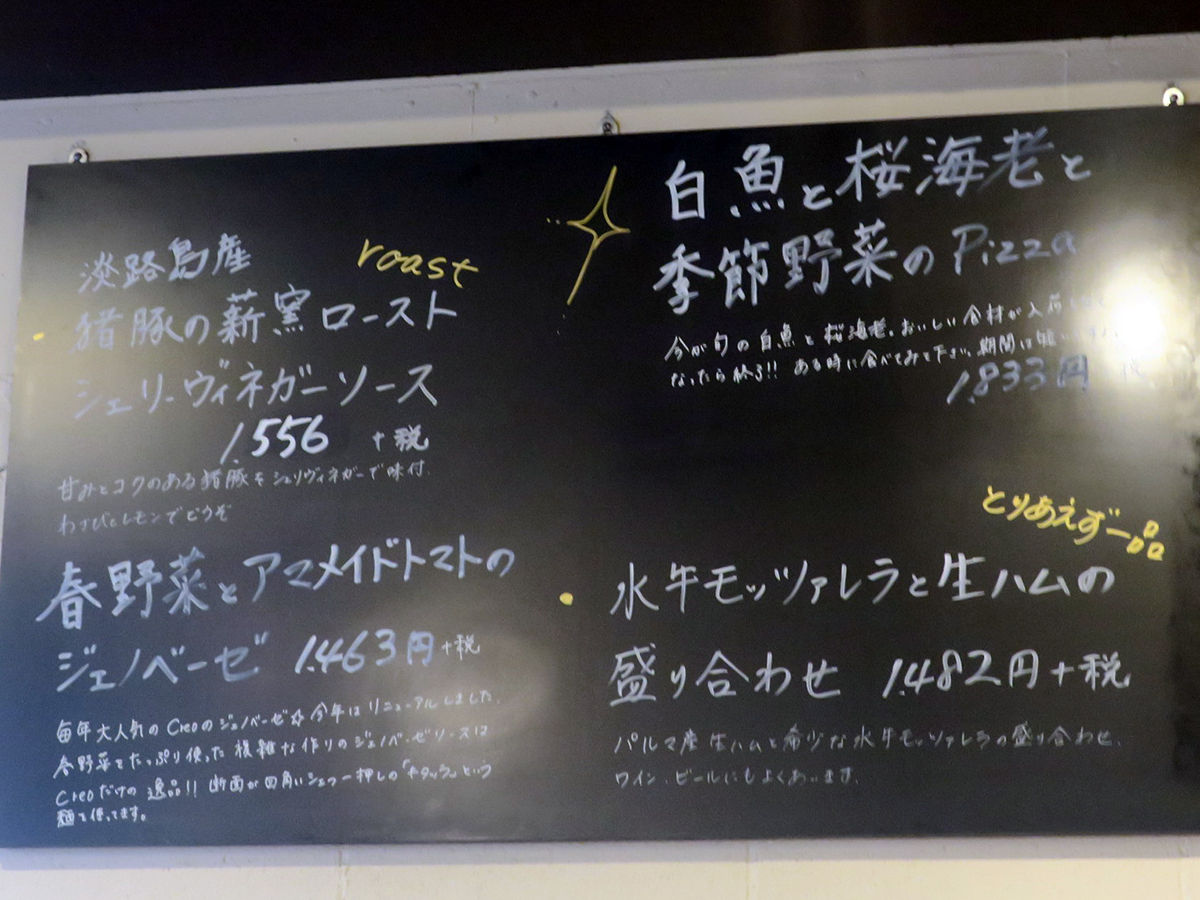 淡路島産
roast
猪豚の薪窯ロースト
シェリーヴィネガーソース
1.556 +税
甘みとコクのある猪豚をシェリヴィネガーで味付.
わさびとレモンでどうぞ
春野菜とアマメイドトマトの
ジェノベーゼ 1.463円+税
毎年大人気のCreoのジェノベーゼ☆今年はリニューアルしました.
春野菜をたっぷり使った複雑な作りのジェノベーゼソースは
Creoだけの逸品!! 断面が四角いシェフ一押しの「キタッラ」という
麺を使ってます。
白魚と桜海老と
季節野菜のPizza
今が旬の白魚と桜海老。おいしい食材が入荷
なったら終了!! ある時に食べてみて下さい。期間は短いです
1.833円 税
とりあえず一品
水牛モッツァレラと生ハムの
盛り合わせ 1.482円+税
パルマ産生ハムと希少な水牛モッツァレラの盛り合わせ.
ワイン、ビールにもよくあいます.